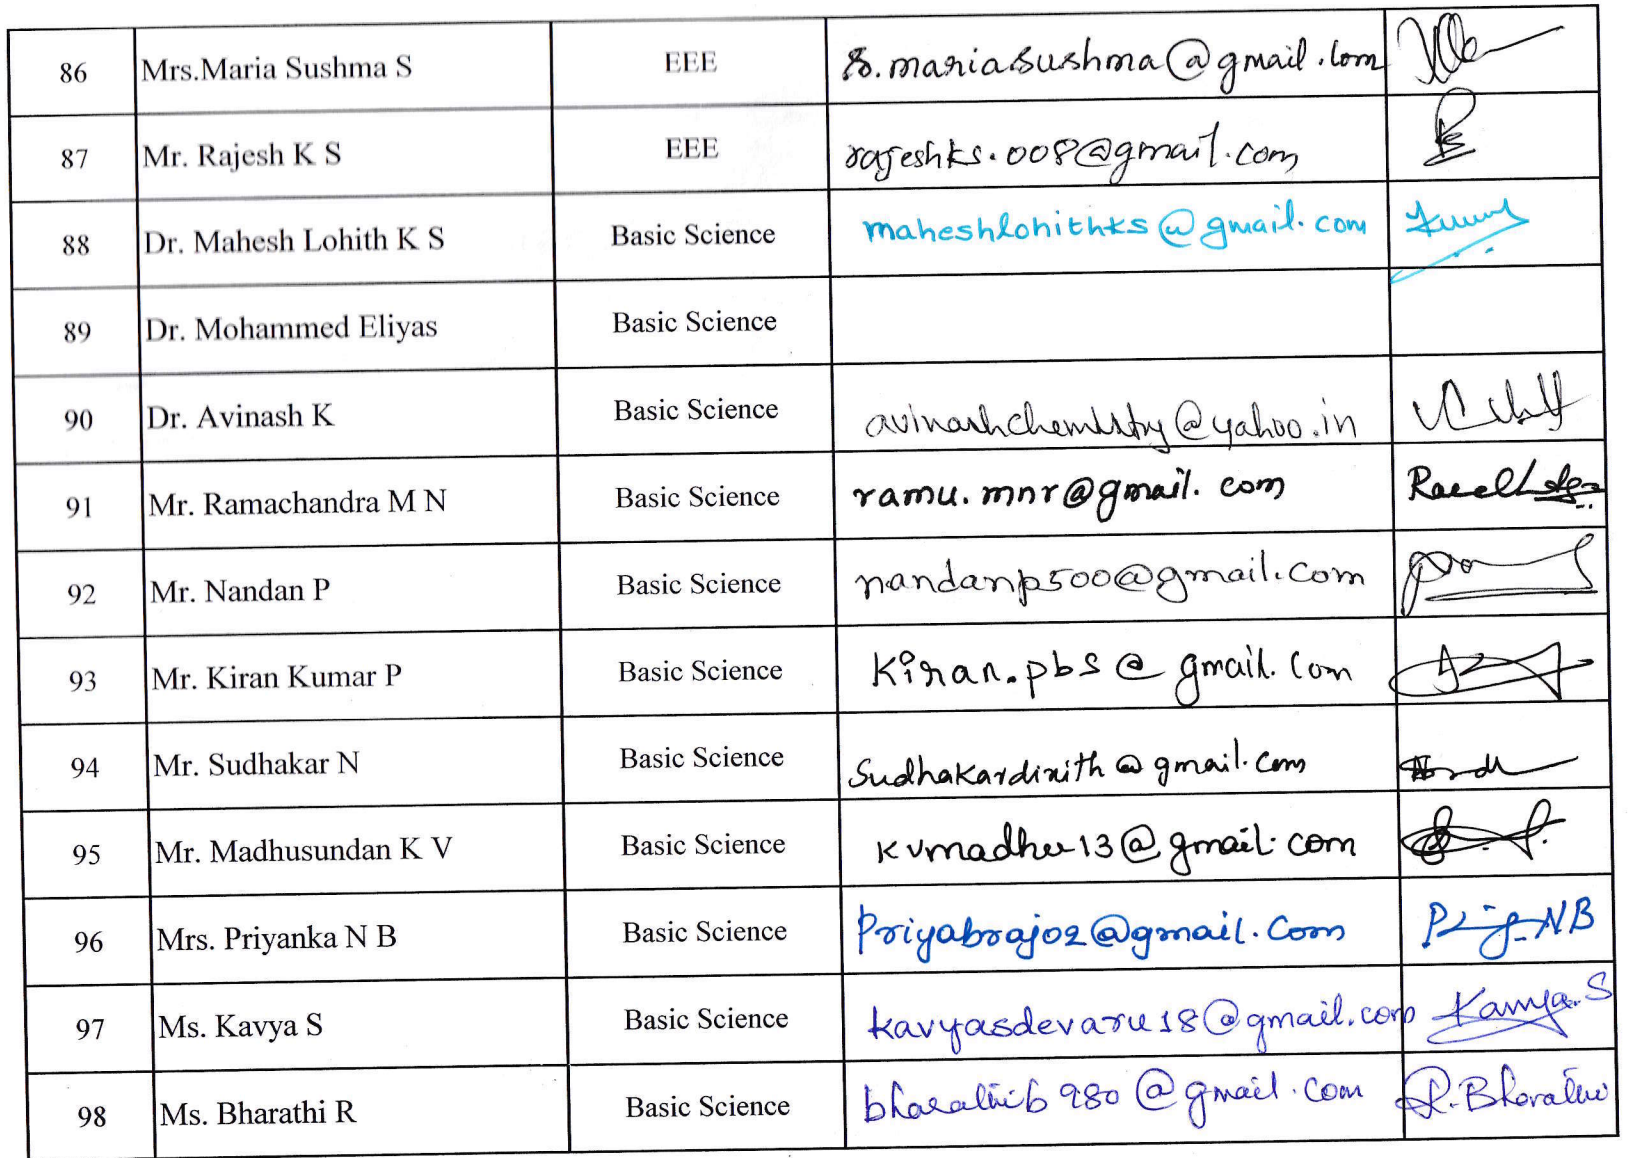 86 Mrs.Maria Sushma S EEE s.mariasushma@gmail.com
87 Mr. Rajesh K S EEE rajeshks.008@gmail.com
88 Dr. Mahesh Lohith K S Basic Science maheshlohithks@gmail.com
89 Dr. Mohammed Eliyas Basic Science
90 Dr. Avinash K Basic Science avinashchemistry@yahoo.in
91 Mr. Ramachandra M N Basic Science ramu.mnr@gmail.com
92 Mr. Nandan P Basic Science nandanp500@gmail.com
93 Mr. Kiran Kumar P Basic Science Kiran.pbs@gmail.com
94 Mr. Sudhakar N Basic Science Sudhakardixith@gmail.com
95 Mr. Madhusundan K V Basic Science kvmadhu13@gmail.com
96 Mrs. Priyanka N B Basic Science Priyabraj02@gmail.com NB
97 Ms. Kavya S Basic Science kavyasdevaru18@gmail.com Kavya.S
98 Ms. Bharathi R Basic Science bharathib980@gmail.com R.Bharathi